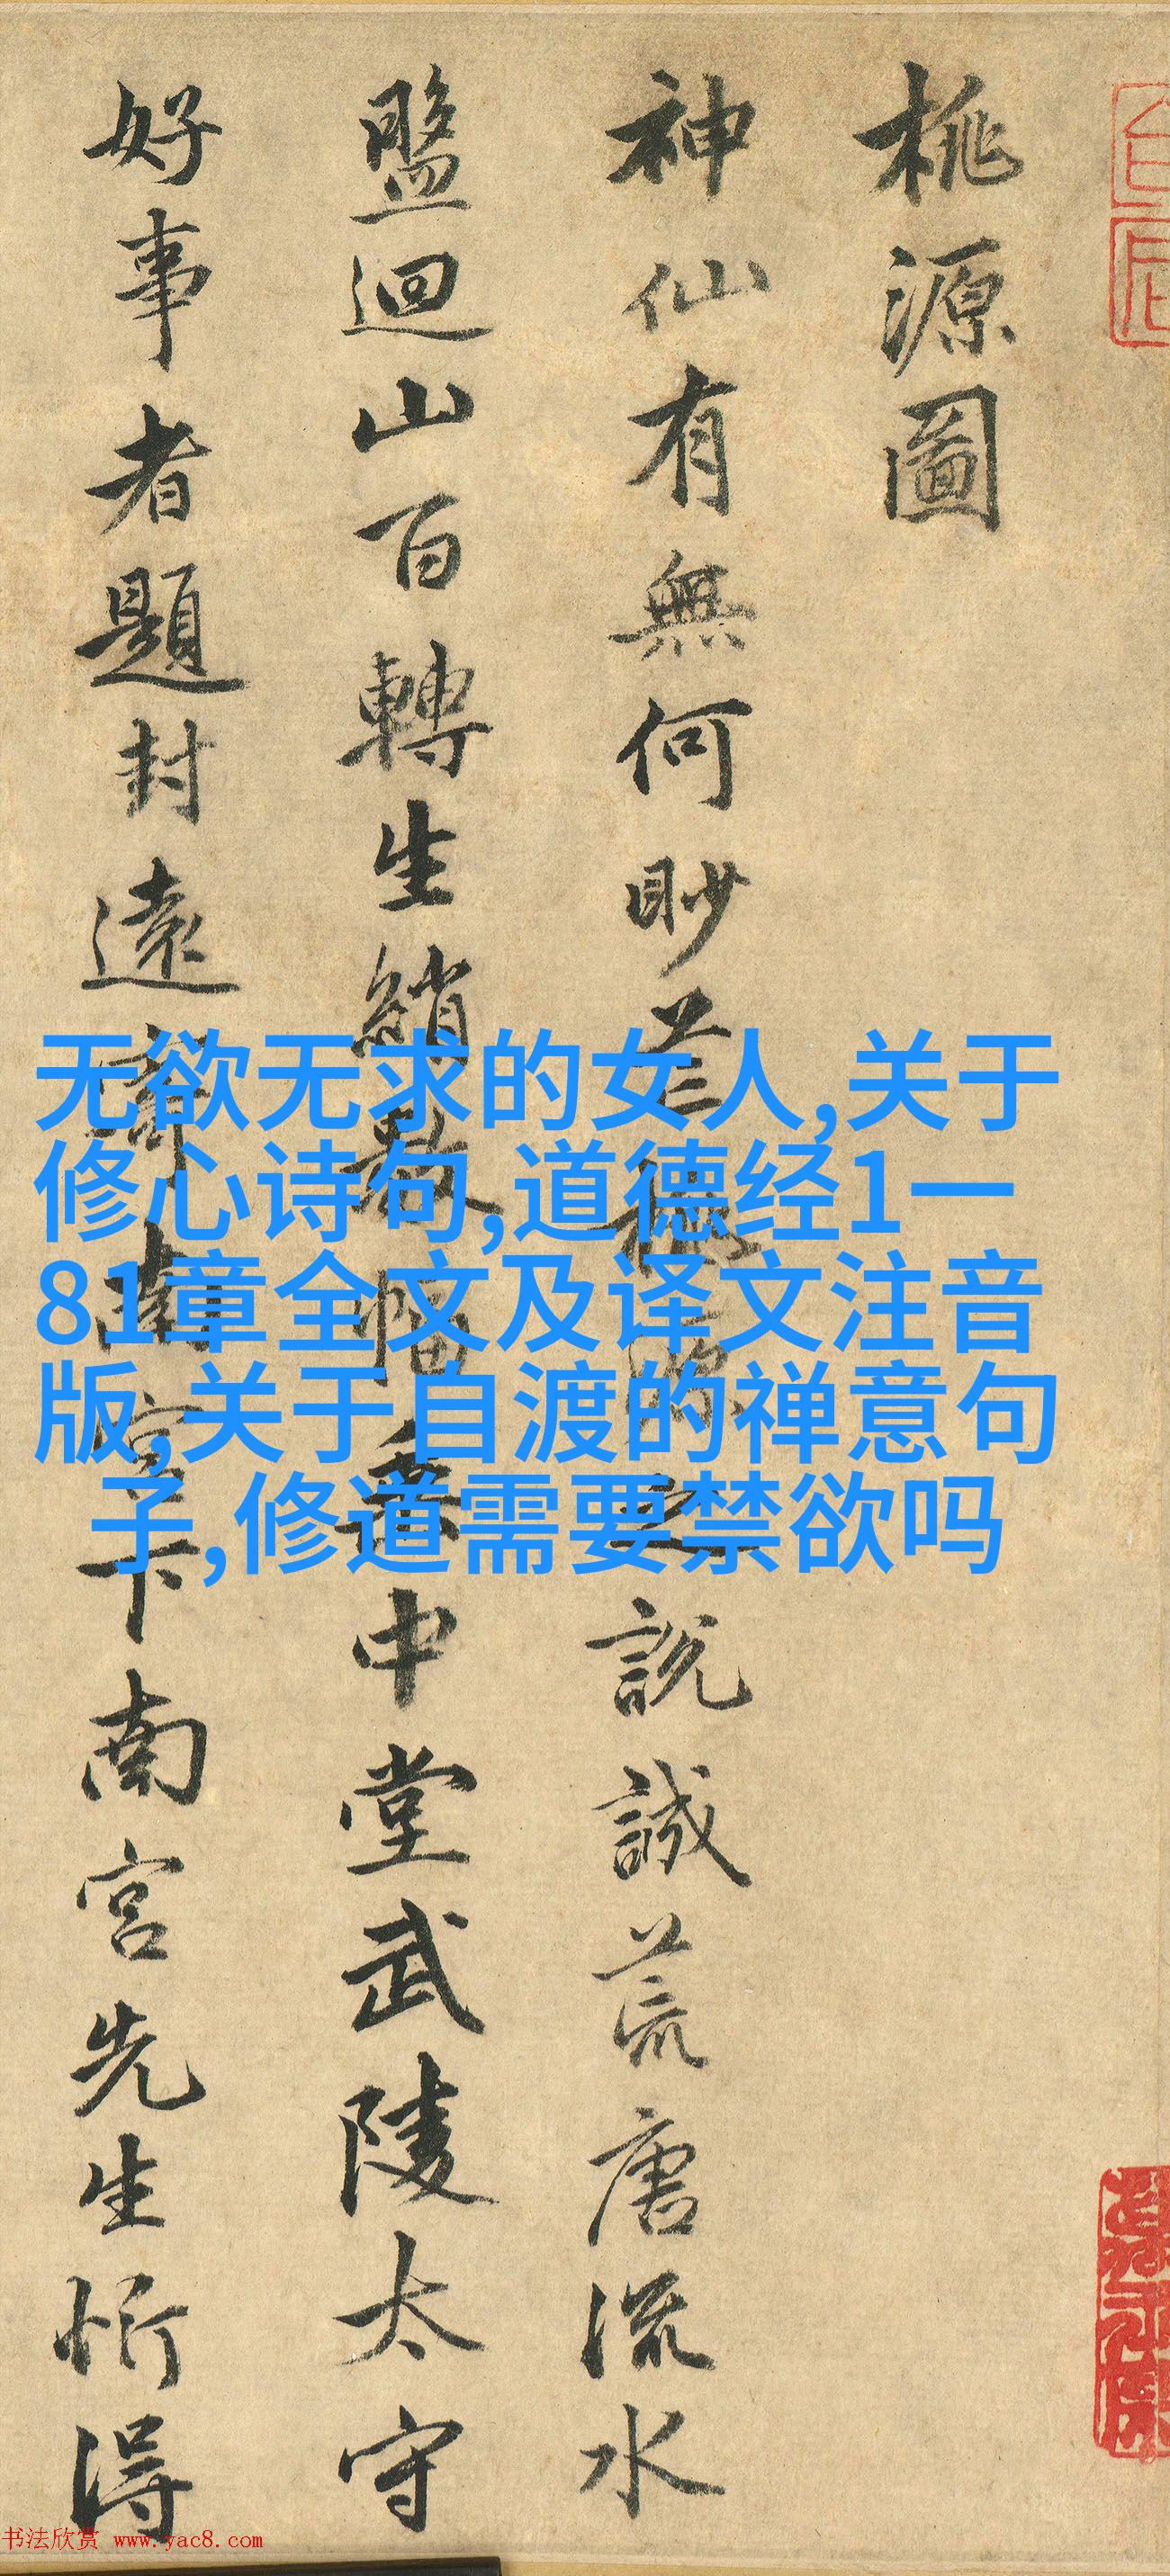 桃源圖
神仙有無何眇芒桃源之說誠荒唐流水
盤迴山百轉生綃數幅垂中堂武陵太守
好事者題封遠寄南宮下南宮先生忻得
无欲无求的女人,关于
修心诗句,道德经1一
81章全文及译文注音
版,关于自渡的禅意句
子,修道需要禁欲吗
书法欣赏 www.yac8.com